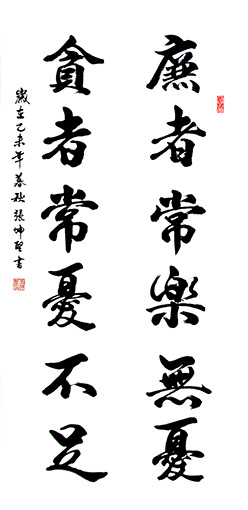 廉者常樂無憂
貪者常憂不足
歲在乙未年暮秋張坤聖書